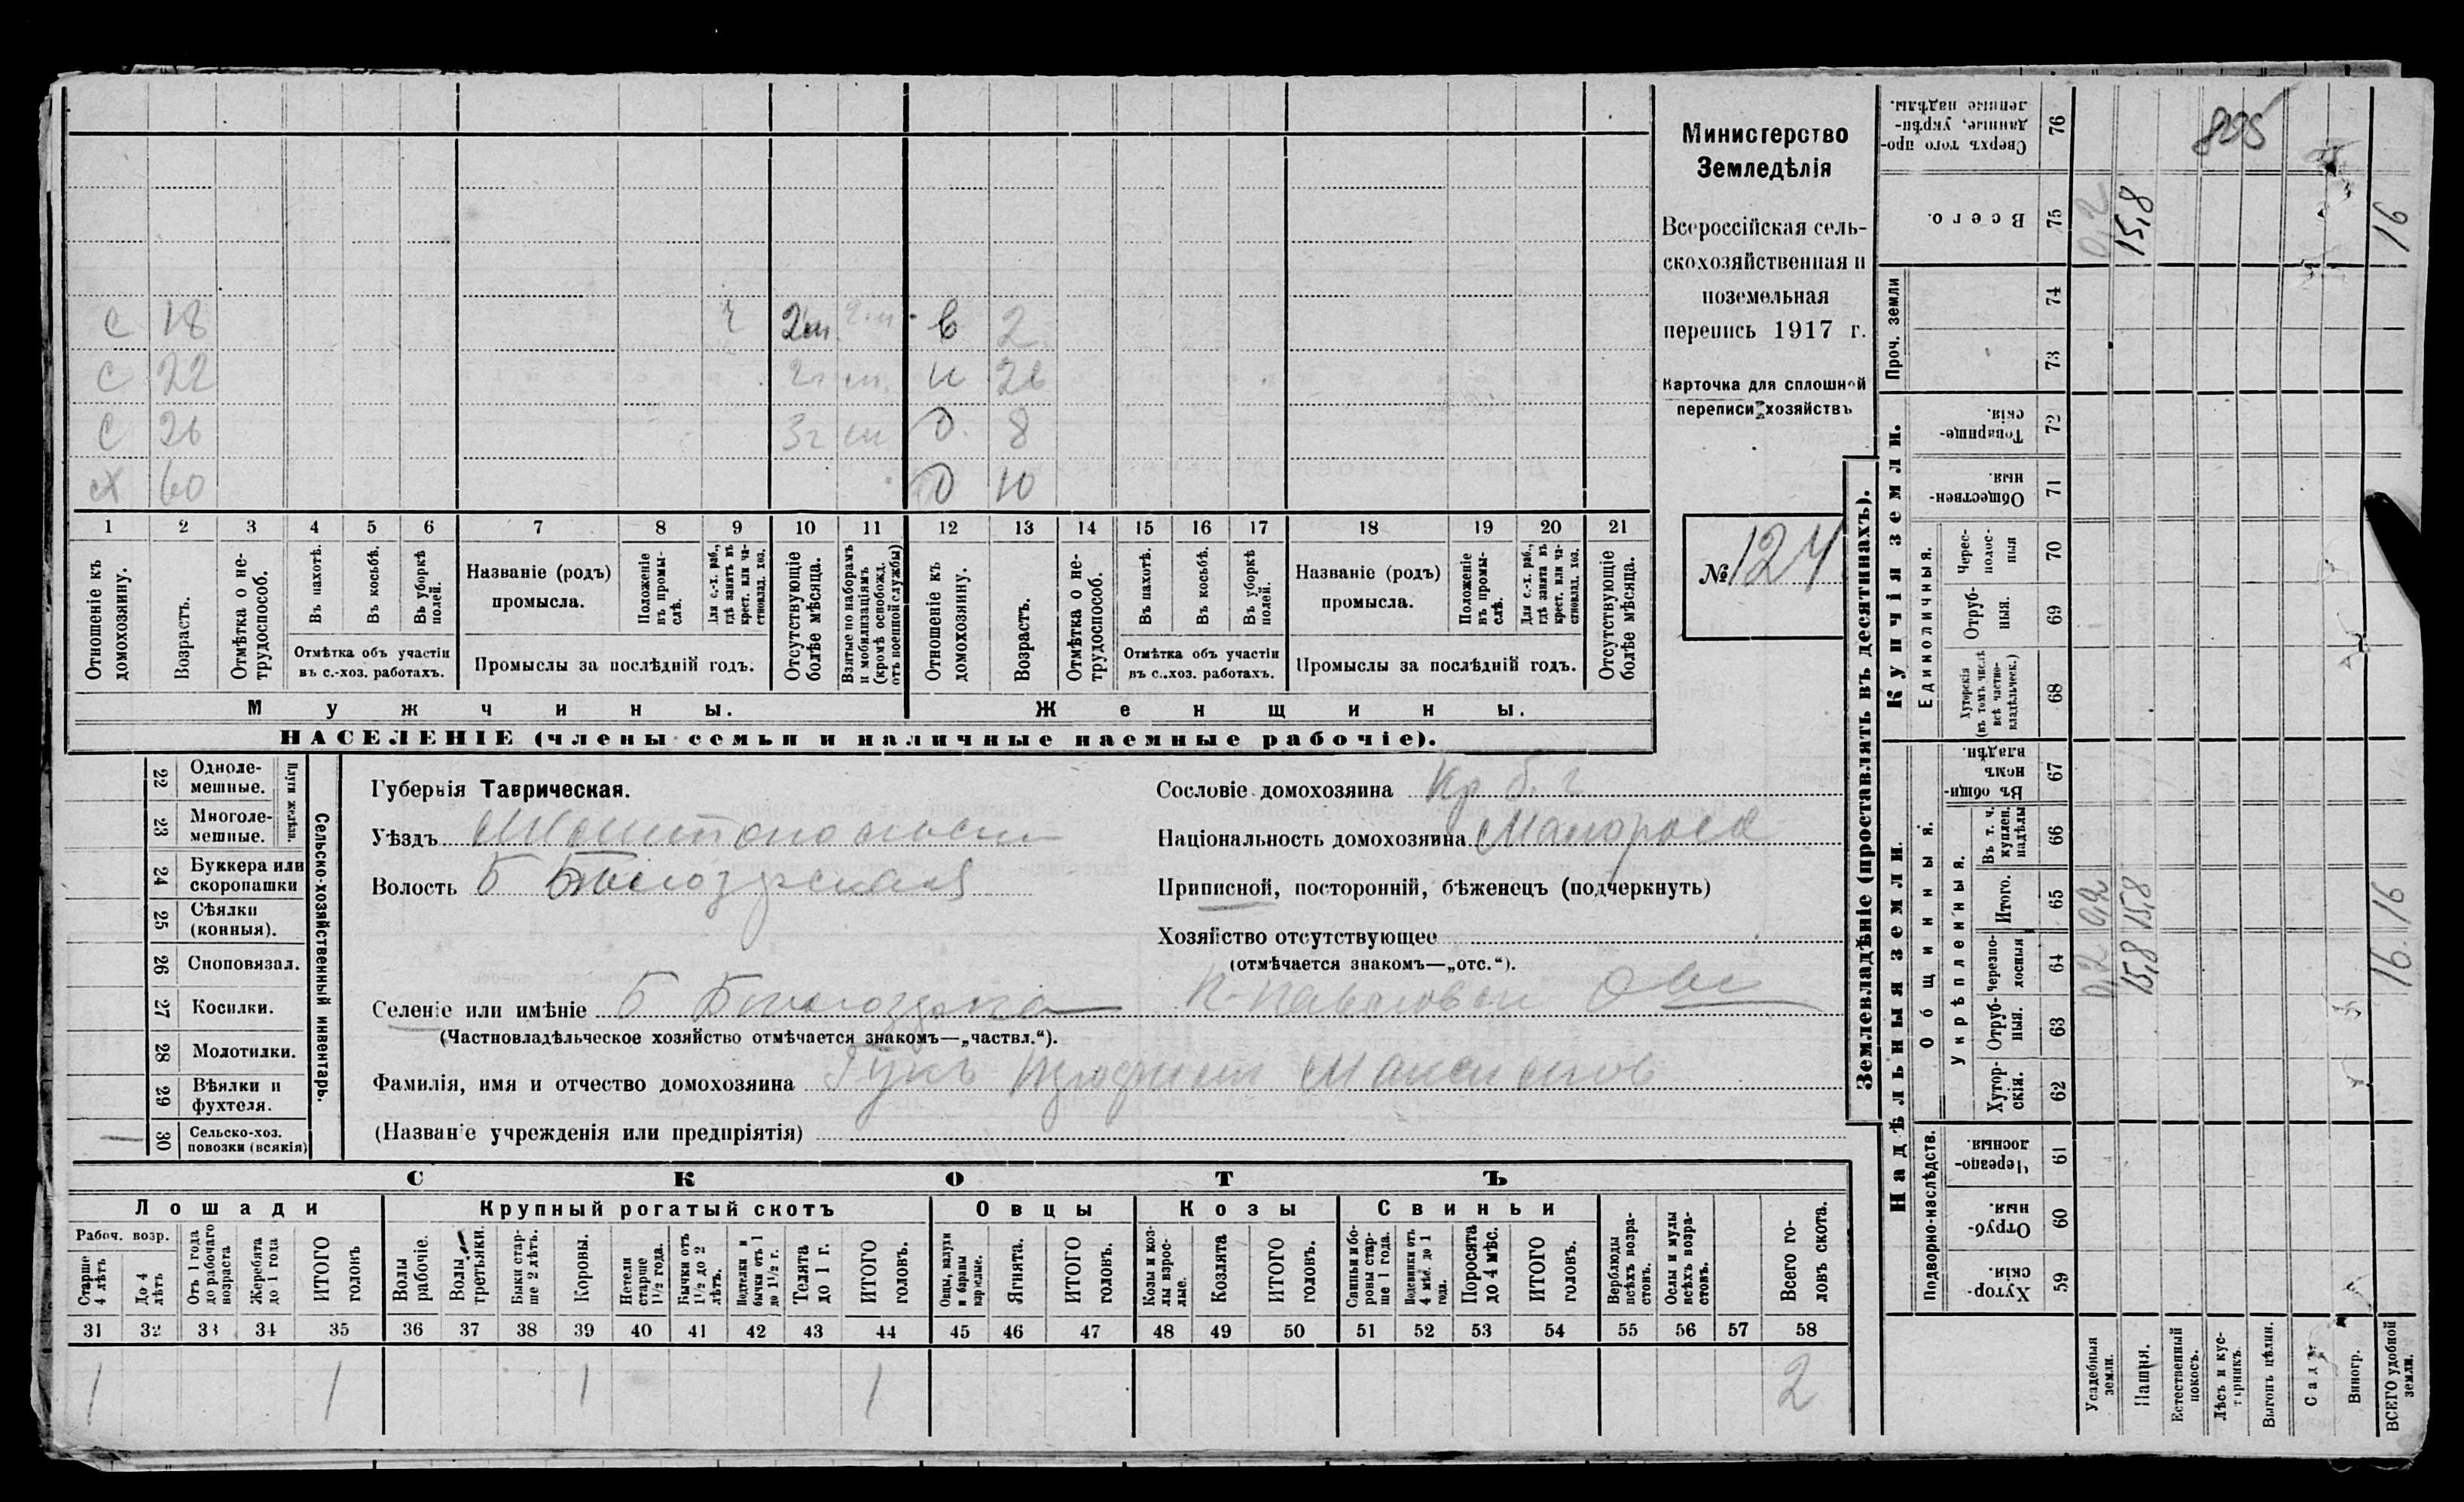 825
с 18 2 м в 2
с 22 2 г м н 26
с 26 3 г м д 8
х 60 д 10
1 2 3 4 5 6 7 8 9 10 11 12 13 14 15 16 17 18 19 20 21
Отношеніе къ домохозяину.
Возрастъ.
Отмѣтка о не-
трудоспособ.
Въ пахотѣ.
Въ косьбѣ.
Въ уборкѣ
полей.
Отмѣтка объ участіи
въ с.-хоз. работахъ.
Названіе (родъ)
промысла.
Положеніе
въ промы-
слѣ.
Для с.-х. раб.,
гдѣ занятъ въ
крест. или ча-
стновлад. хоз.
Промыслы за послѣдній годъ.
Отсутствующіе
болѣе мѣсяца.
Взятые по наборамъ
и мобилизаціямъ
(кромѣ освобожд.
отъ военной службы)
Отношеніе къ
домохозяину.
Возрастъ.
Отмѣтка о не-
трудоспособ.
Въ пахотѣ.
Въ косьбѣ.
Въ уборкѣ
полей.
Отмѣтка объ участіи
въ с.-хоз. работахъ.
Названіе (родъ)
промысла.
Положеніе
въ промы-
слѣ.
Для с.-х. раб.,
гдѣ занята въ
крест. или ча-
стновлад. хоз.
Промыслы за послѣдній годъ.
Отсутствующіе
болѣе мѣсяца.
Мужчины.
Женщины.
НАСЕЛЕНІЕ (члены семьи и наличные наемные рабочіе).
Министерство
Земледѣлія
Всероссійская сель-
скохозяйственная и
поземельная
перепись 1917 г.
Карточка для сплошной
переписи хозяйствъ
№ 124
22 Одноле-
мешные.
23 Многоле-
мешные.
Плуги желѣзн.
24 Буккера или
скоропашки
25 Сѣялки
(конныя).
26 Сноповязал.
27 Косилки.
28 Молотилки.
29 Вѣялки и
фухтеля.
30 Сельско-хоз.
повозки (всякія)
Сельско-хозяйственный инвентарь.
Губернія Таврическая.
Уѣздъ Мелитопольский
Волость Б Бѣлозерская
Селеніе или имѣніе Б Бѣлозерка
(Частновладѣльческое хозяйство отмѣчается знакомъ—„частвл.“).
Фамилія, имя и отчество домохозяина Гукъ Максимов
(Названіе учрежденія или предпріятія)
Сословіе домохозяина Кр
Національность домохозяина Малоросс
Приписной, посторонній, бѣженецъ (подчеркнуть)
Хозяйство отсутствующее
(отмѣчается знакомъ—„отс.“).
СКОТЪ
Лошади
Рабоч. возр.
Старше
4 лѣтъ
До 4
лѣтъ
Отъ 1 года
до рабочаго
возраста
Жеребята
до 1 года
ИТОГО
головъ
Крупный рогатый скотъ
Волы
рабочіе.
Волы
третьяки.
Быки стар-
ше 2 лѣтъ.
Коровы.
Нетели
старше
1½ года.
Бычки отъ
1½ до 2
лѣтъ.
Подтелки и
бычки отъ 1
до 1½ г.
Телята
до 1 г.
ИТОГО
головъ.
Овцы
Овцы, валухи
и бараны
взрослые.
Ягнята.
ИТОГО
головъ.
Козы
Козы и коз-
лы взрос-
лые.
Козлята
ИТОГО
головъ.
Свиньи
Свиньи и бо-
ровы стар-
ше 1 года.
Подсвинки отъ
4 мѣс. до 1
года.
Поросята
до 4 мѣс.
ИТОГО
головъ.
Верблюды
всѣхъ возра-
стовъ.
Ослы и мулы
всѣхъ возра-
стовъ.
Всего го-
ловъ скота.
31 32 33 34 35 36 37 38 39 40 41 42 43 44 45 46 47 48 49 50 51 52 53 54 55 56 57 58
1 1 1 1 2
Землевладѣніе (проставлять въ десятинахъ).
Надѣльныя земли.
Подворно-наслѣдств.
Хутор-
скія. 59
Отруб-
ныя. 60
Черезпо-
лосныя. 61
Общинныя.
Укрѣпленныя.
Хутор-
скія. 62
Отруб-
ныя. 63
Черезпо-
лосныя 64
Итого. 65
Въ т. ч.
куплен.
надѣлы 66
Въ общи-
номъ
владѣн. 67
Купчія земли.
Единоличныя.
Хуторскія
(въ томъ числѣ
всѣ частно-
владѣльческ.) 68
Отруб-
ныя. 69
Черес-
полос-
ныя 70
Обществен-
ныя. 71
Товарище-
скія. 72
Проч. земли
73 74
Всего. 75
Сверхъ того про-
данные, укрѣп-
ленные надѣлы. 76
Усадебныя
земли.
0,2 0,2 0,2
Пашня.
15,8 15,8 15,8
Естественный
покосъ.
Лѣсъ и кус-
тарникъ.
Выгонъ цѣлин.
Садъ
Виногр.
ВСЕГО удобной
земли.
16 16 16